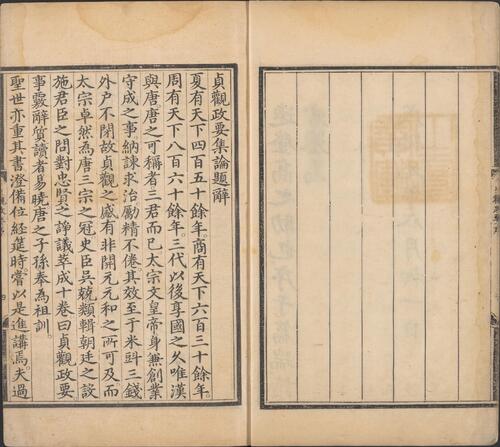 貞觀政要集論題辭
夏有天下四百五十餘年。商有天下六百三十餘年。
周有天下八百六十餘年。三代以後享國之久唯漢
與唐。唐之可稱者三君而已。太宗文皇帝身兼創業
守成之事納諫求治勵精不倦其效至于米斗三錢
外户不閉故貞觀之盛有非開元元和之所可及而
太宗卓然為唐三宗之冠史臣吳兢類輯朝廷之設
施君臣之問對忠賢之諍議萃成十卷曰貞觀政要
事覈辭質讀者易曉唐之子孫奉為祖訓。
聖世亦重其書澄備位經筵時。嘗以是進講焉。夫過